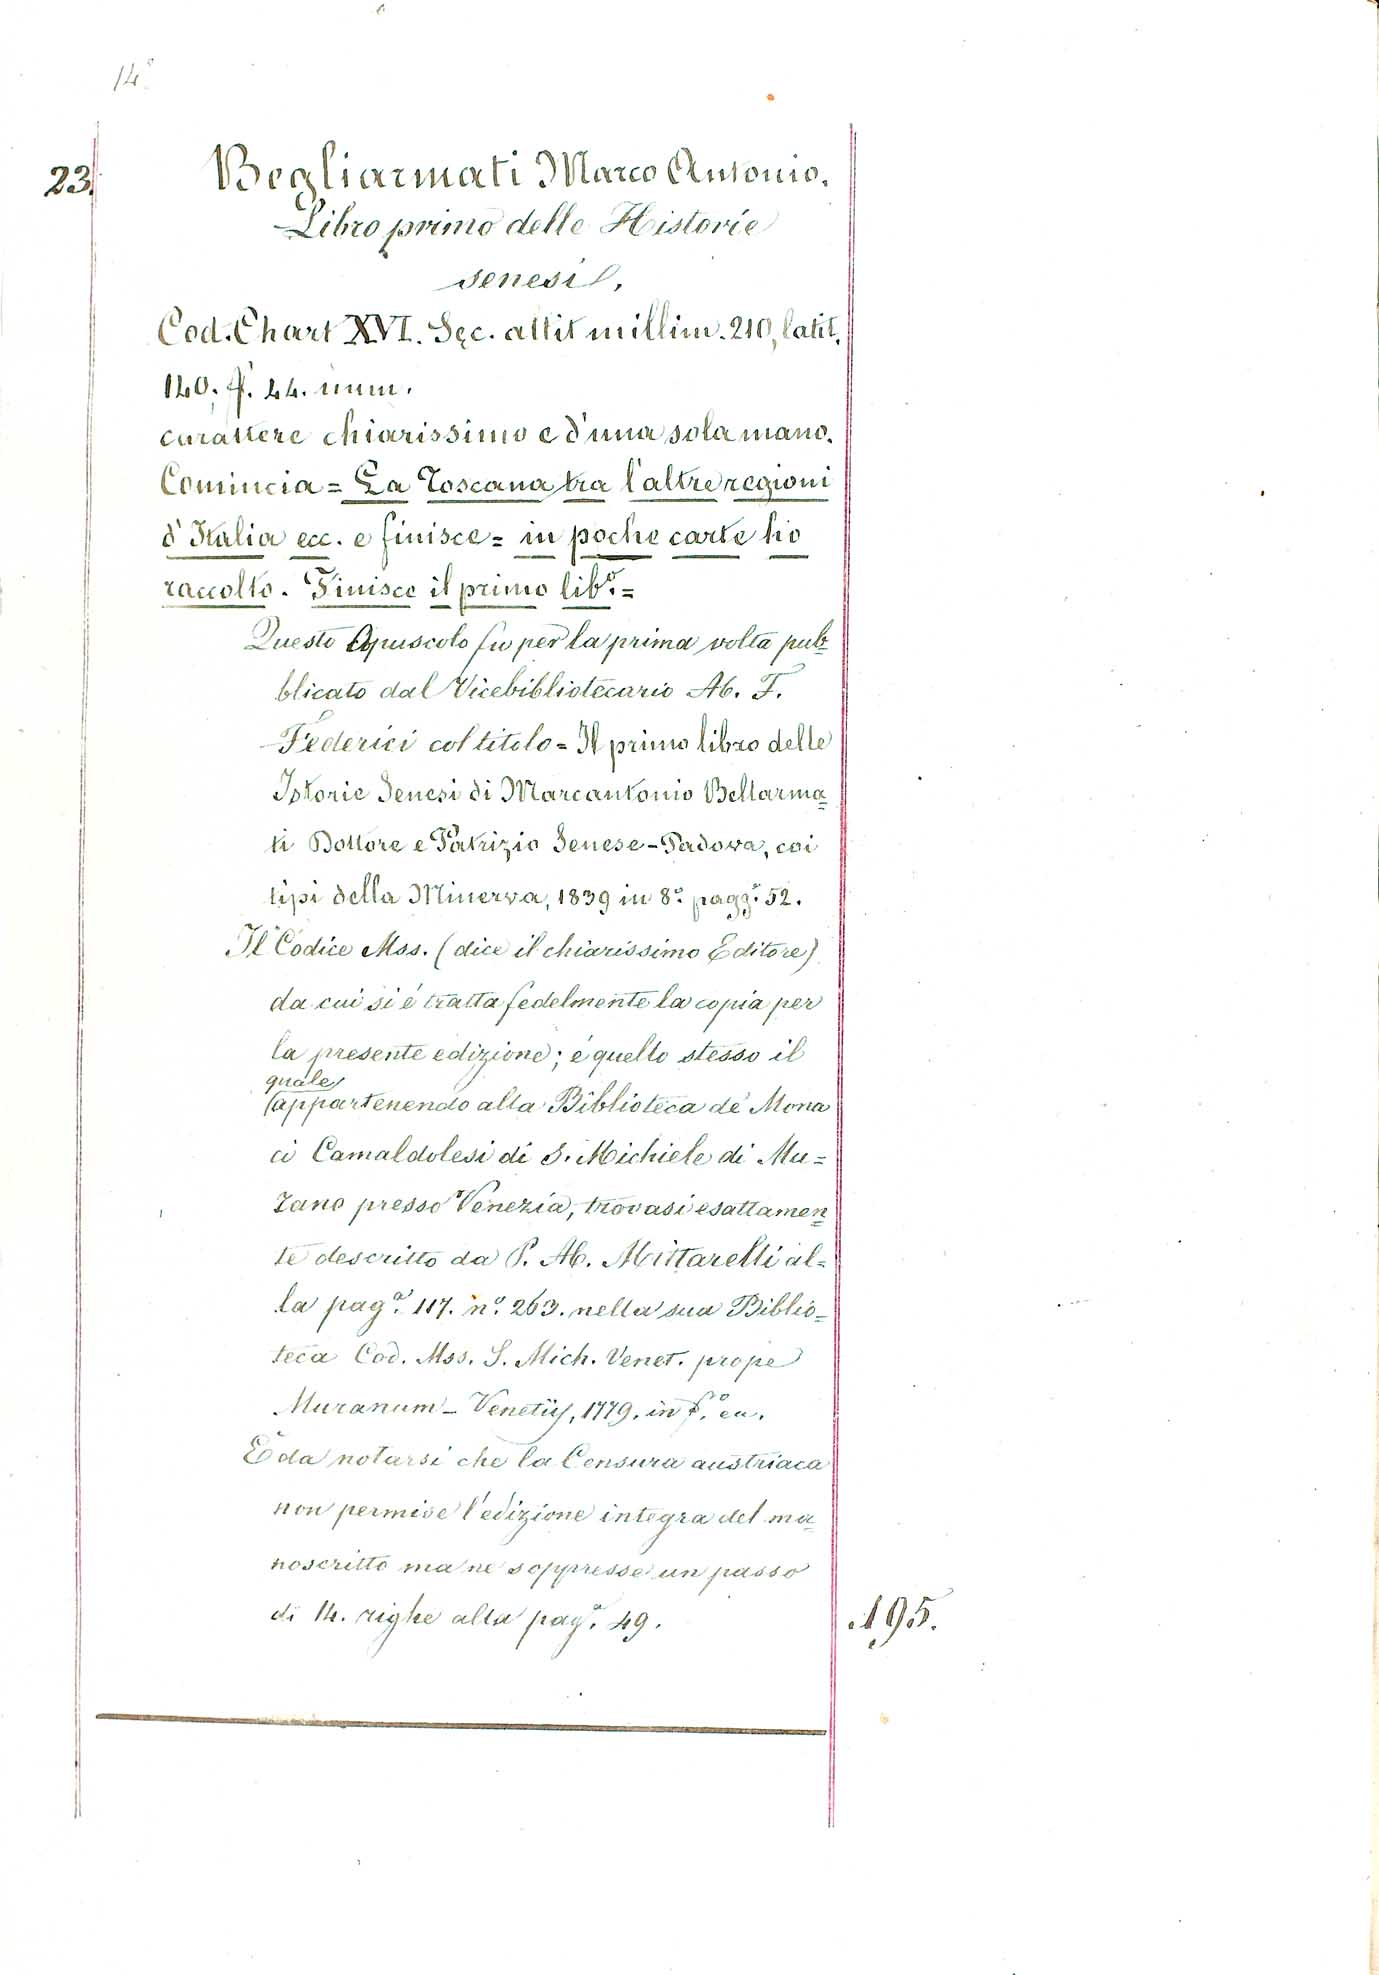 14.°
23.
Begliarmati Marco Antonio.
Libro primo delle Historie
senesi.
Cod. Chart XVI. Sęc. altit millim. 210, latit.
140, f. 44. num.
carattere chiarissimo e d'una sola mano.
Comincia = La Toscana tra l'altre regioni
d'Italia ecc. e finisce = in poche carte ho
raccolto. Finisce il primo lib.° =
Questo Opuscolo fu per la prima volta pub=
blicato dal Vicebibliotecario Ab. F.
Federici col titolo = Il primo libro delle
Istorie Senesi di Marcantonio Bellarma=
ti Dottore e Patrizio Senese - Padova, coi
tipi della Minerva, 1839 in 8.° pagg.° 52.
Il Codice Mss. (dice il chiarissimo Editore)
da cui si é tratta fedelmente la copia per
la presente edizione; é quello stesso il
quale
(appartenendo alla Biblioteca de' Mona
ci Camaldolesi di S. Michiele di Mu=
rano presso Venezia, trovasi esattamen=
te descritto da P. Ab. Mittarelli al=
la pag.ª 117. n.° 263. nella sua Biblio=
teca Cod. Mss. S. Mich. Venet. prope
Muranum - Venetiis, 1779. in f.°
E' da notarsi che la Censura austriaca
non permise l'edizione integra del ma=
noscritto ma ne soppresse un passo
di 14. righe alla pag.ª 49.
195.